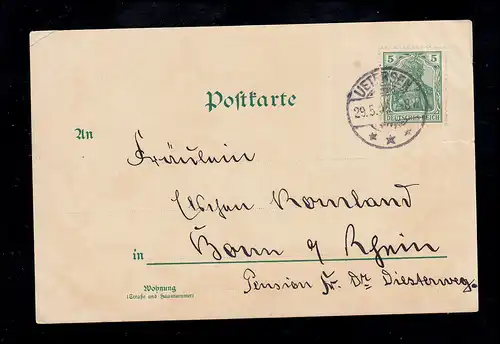 5 5
DEUTSCHES REICH
UETERSEN
29.5.
Postkarte
An
Fräulein
Elschen Romland
in Bonn a/ Rhein
Pension Fr. Dr. Diesterweg.
Wohnung
(Straße und Hausnummer)